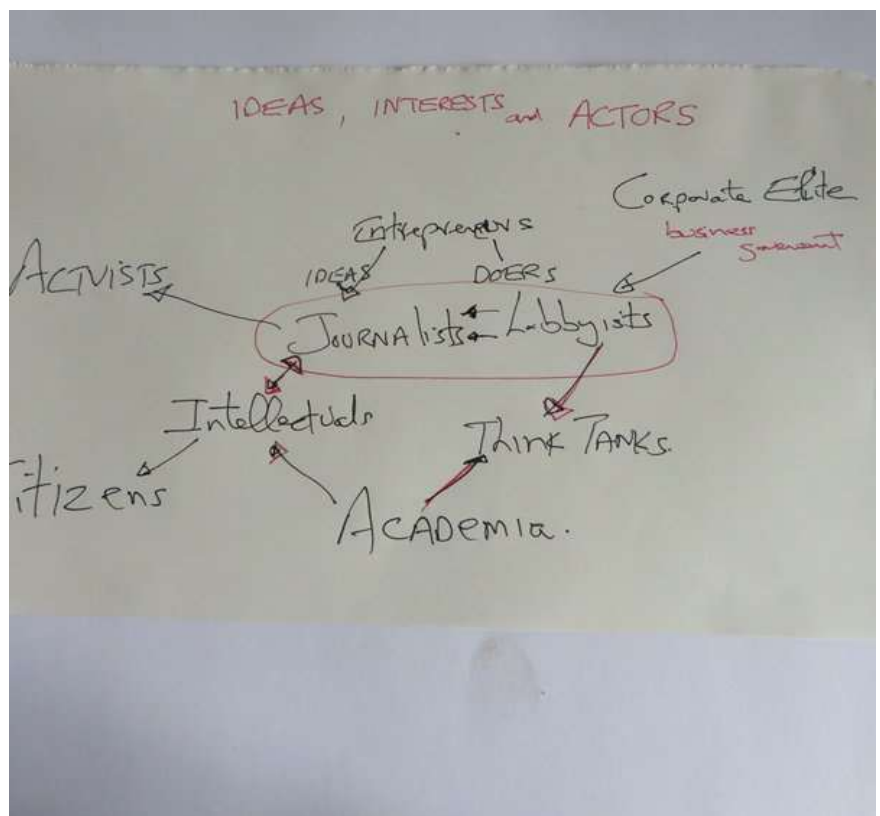 IDEAS, INTERESTS and ACTORS
Corporate Elite
business
government
Entrepreneurs
ACTIVISTS
IDEAS
DOERS
JOURNAlists
Lobbyists
Intellectuals
THINK TANKS.
itizens
ACADEMIA.